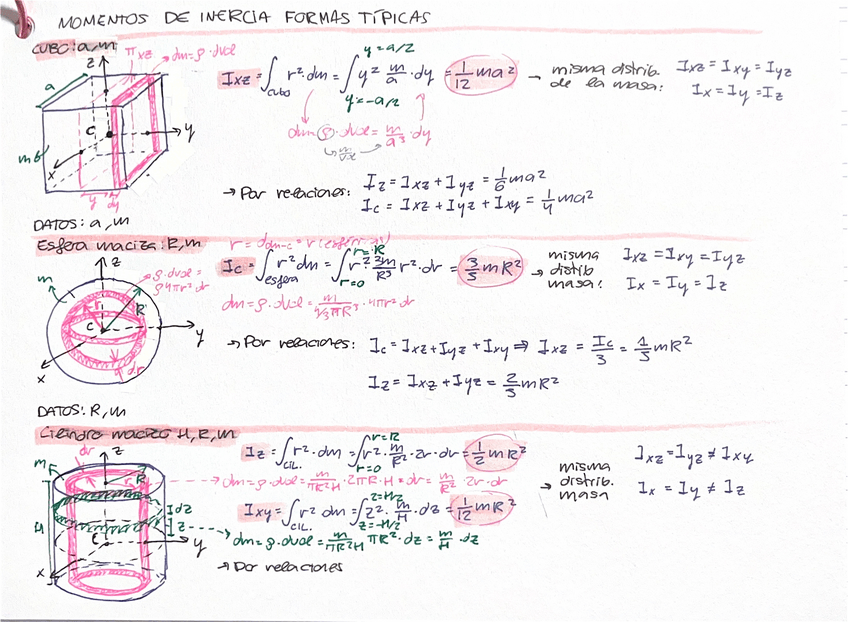 MOMENTOS DE INERCIA FORMAS TÍPICAS
CUBO: a, m
π xz → dm = ρ · dvol
a
z
y
x
C
m
y dy
Ixz = ∫cubo r² · dm = ∫ y=-a/2 y=a/2 y² m/a · dy = 1/12 ma² → misma distrib. de la masa: Ixz = Ixy = Iyz
Ix = Iy = Iz
dm = ρ · dvol = m/a³ · dy
m/vol
→ Por relaciones: Iz = Ixz + Iyz = 1/6 ma²
Ic = Ixz + Iyz + Ixy = 1/4 ma²
DATOS: a, m
Esfera maciza: R, m
r = d dm-c = r (esféricas)
m
z
ρ · dvol =
ρ 4πr² dr
r
R
C
y
x
dr
Ic = ∫esfera r² dm = ∫ r=0 r=R r² 3m/R³ r² · dr = 3/5 mR² → misma distrib masa: Ixz = Ixy = Iyz
Ix = Iy = Iz
dm = ρ · dvol = m/4/3πR³ · 4πr² dr
→ Por relaciones: Ic = Ixz + Iyz + Ixy ⇒ Ixz = Ic/3 = 1/5 mR²
Iz = Ixz + Iyz = 2/5 mR²
DATOS: R, m
Cilindro macizo H, R, m
dr
z
m
r
R
H
dz
z
C
y
x
Iz = ∫CIL. r² · dm = ∫ r=0 r=R r² · m/R² · 2r · dr = 1/2 mR²
dm = ρ · dvol = m/πR²H · 2πR · H · dr = m/R² · 2r · dr
→ misma distrib. masa Ixz = Iyz ≠ Ixy
Ix = Iy ≠ Iz
Ixy = ∫CIL. r² dm = ∫ z=-H/2 z=H/2 z² · m/H · dz = 1/12 mR²
dm = ρ · dvol = m/πR²H πR² · dz = m/H · dz
→ Por relaciones